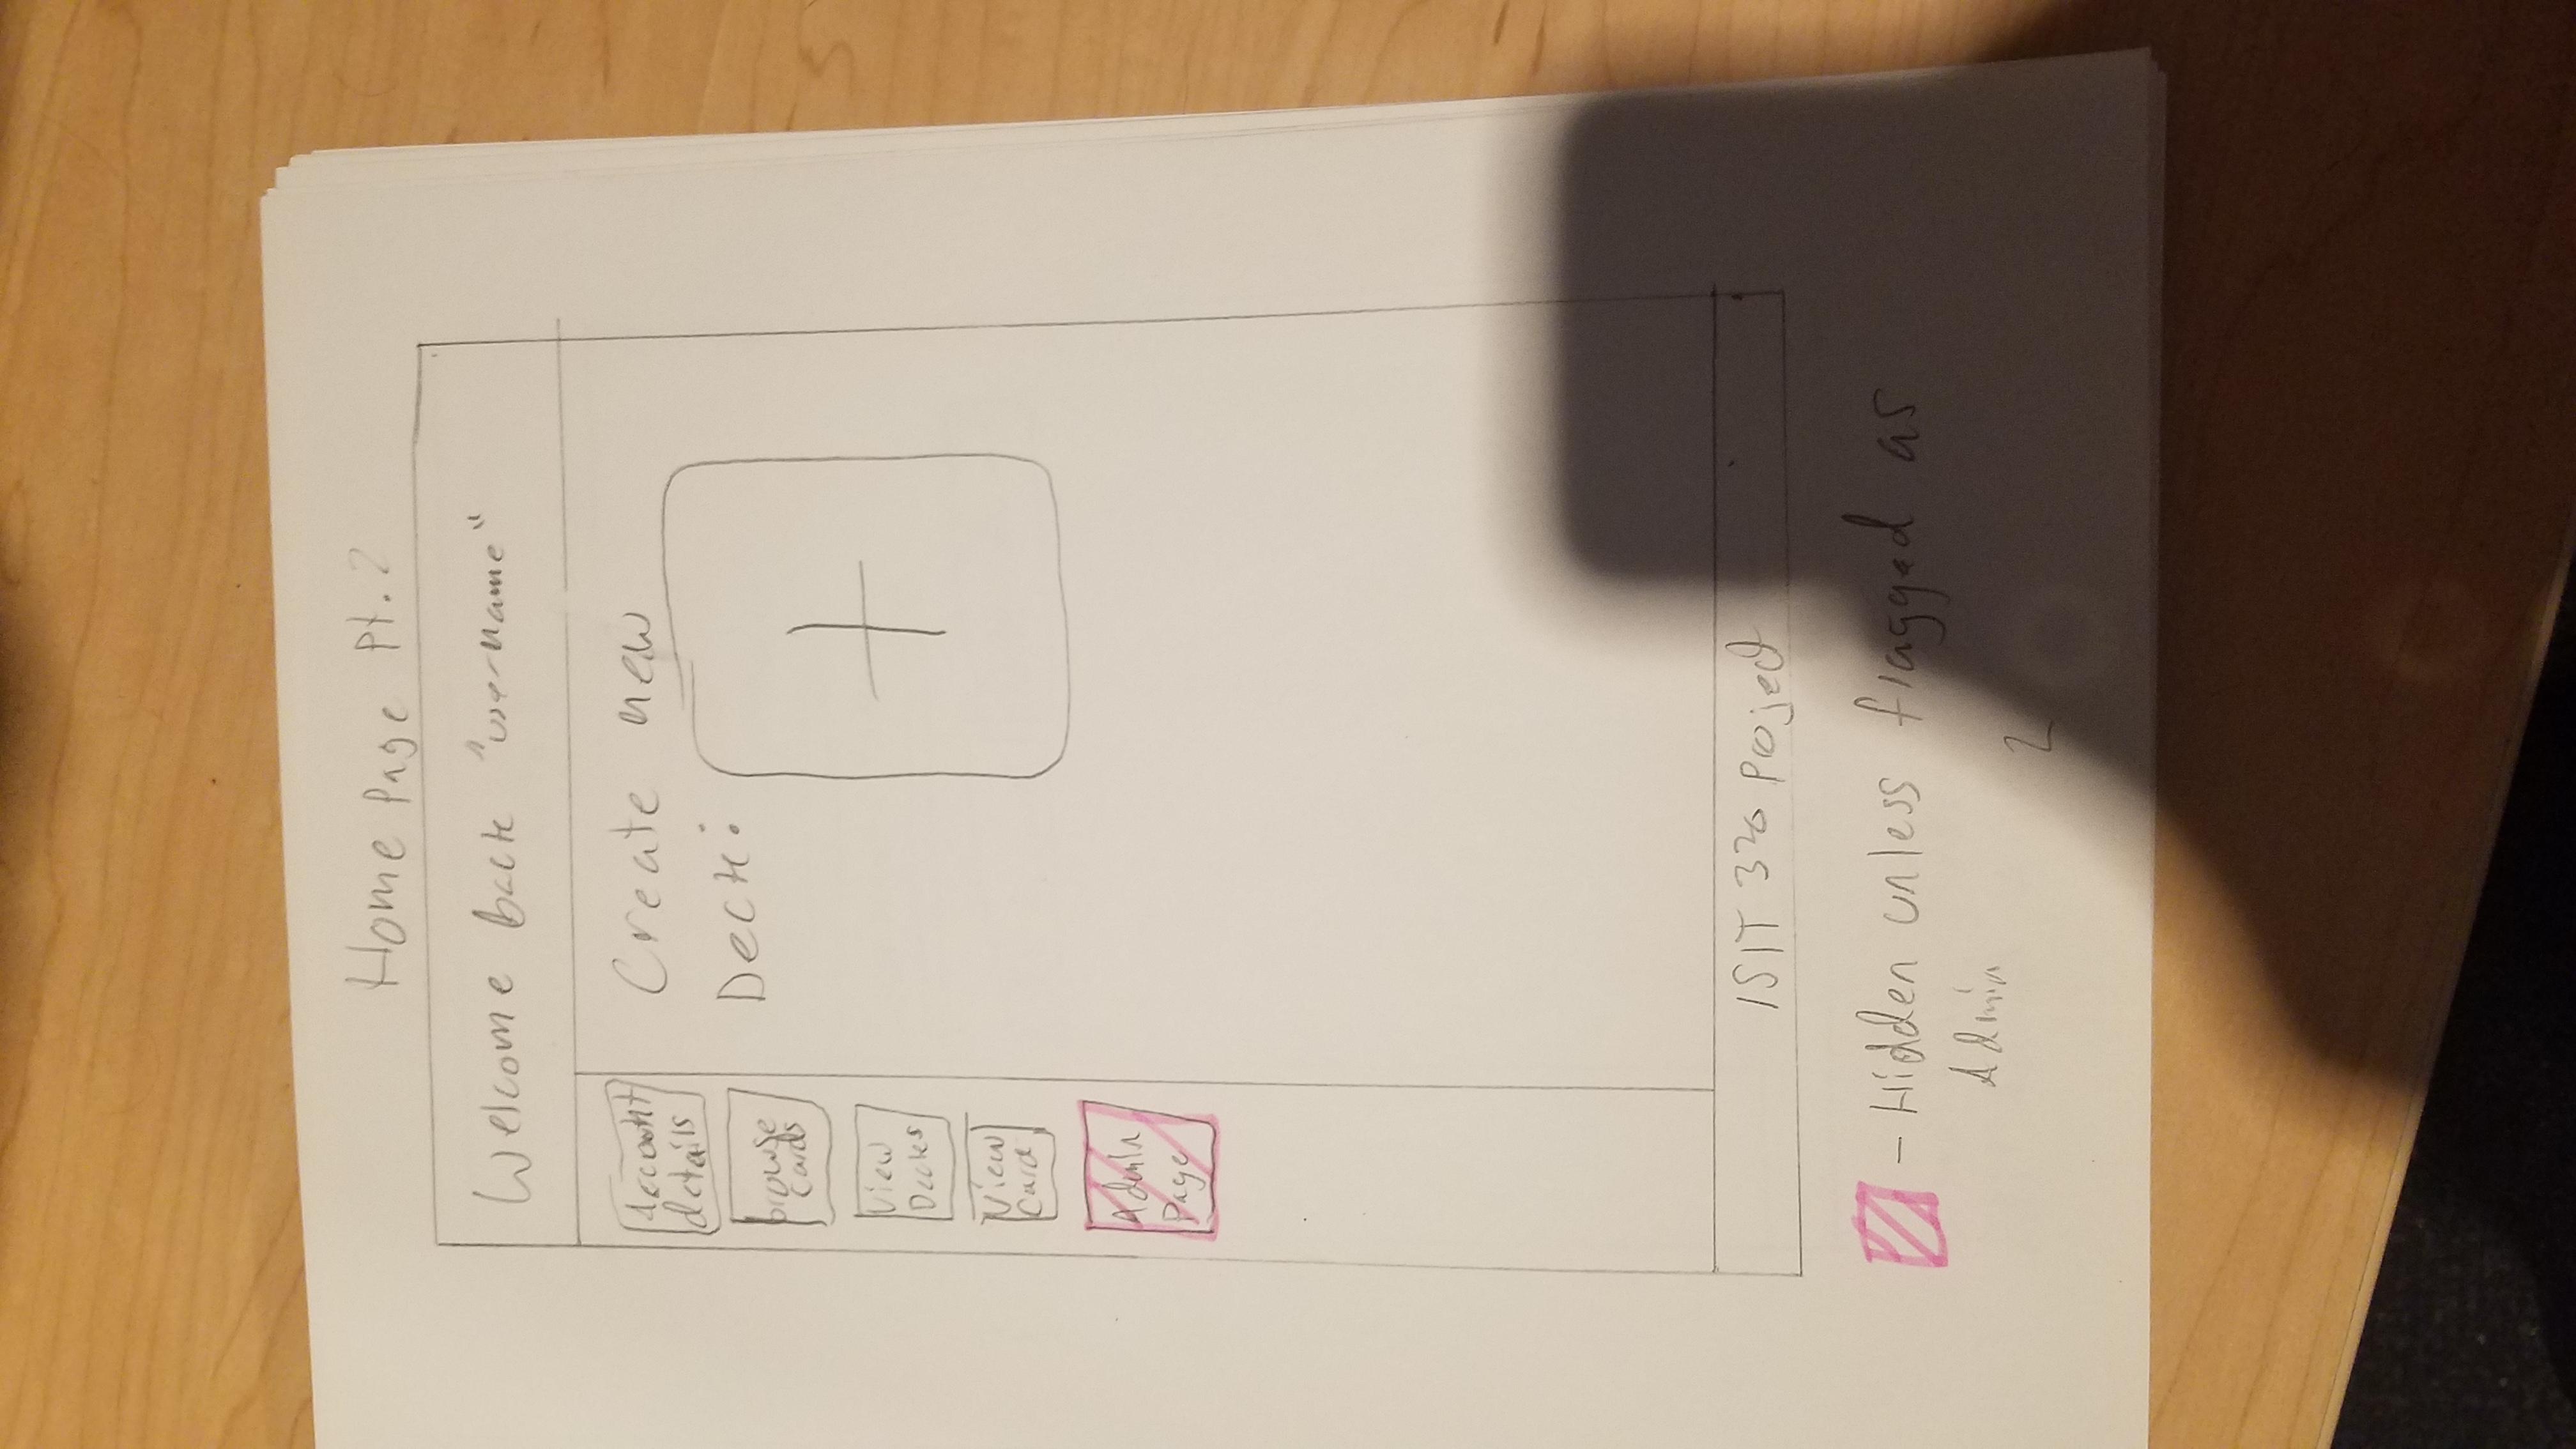 Home Page Pt. 2
Welcome back "username"
Account
details
browse
cards
View
Decks
View
Card
Admin
Page
Create new
Deck:
ISIT 320 Project
- Hidden unless flagged as
Admin
2